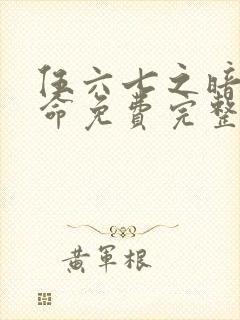 伍六七之暗
命免费完整
黄军根